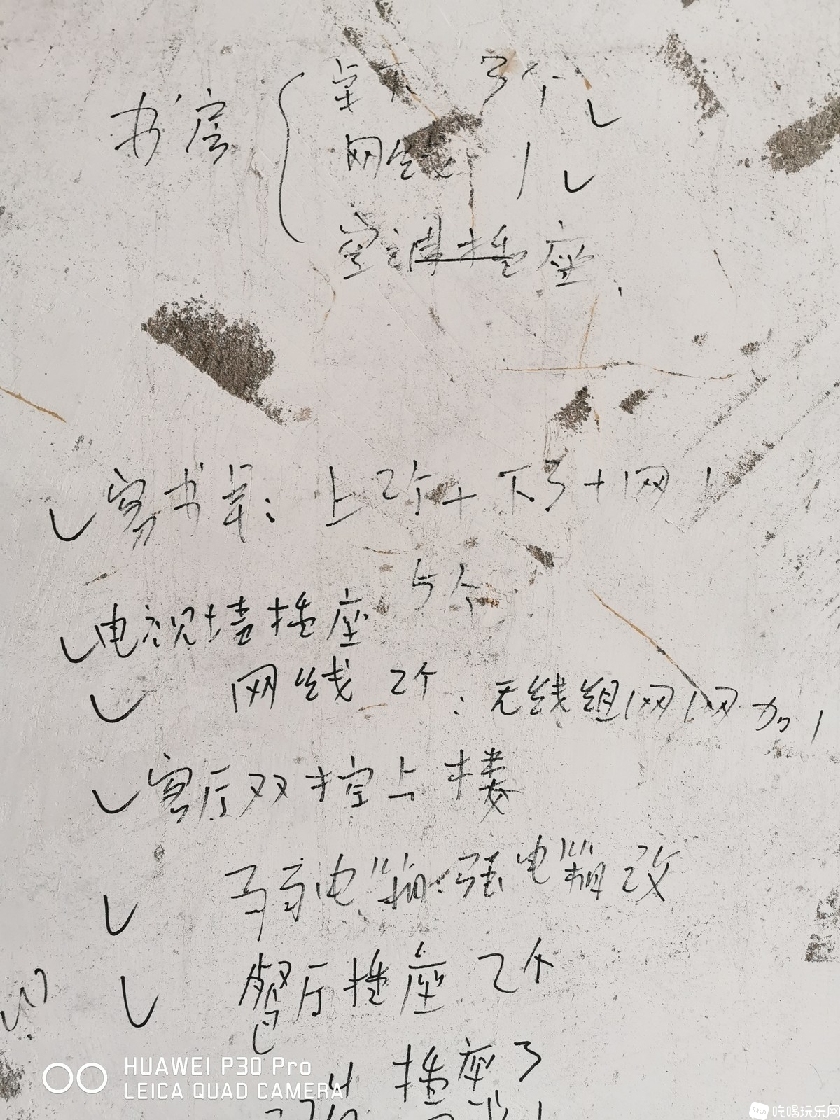 书房
桌下 3个
网线 1
空调插座
客书桌: 上2个+下3+网1
电视墙插座 5个
网线 2个: 无线组网 网加1
客厅双控上楼
弱电箱 强电箱改
餐厅插座 2个
插座3
HUAWEI P30 Pro
LEICA QUAD CAMERA